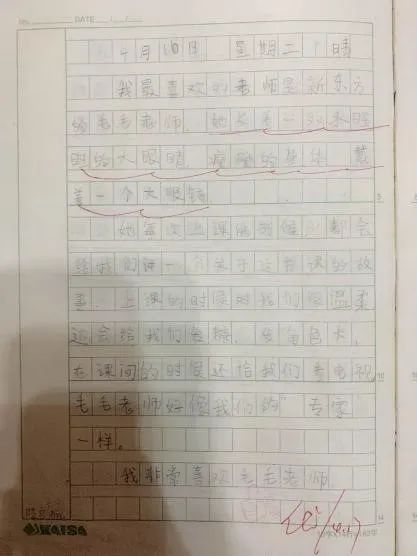 DATE
4月16日 星期二 晴
我最喜欢的老师是新东方
的毛毛老师。她长着一双水
的大眼睛，瘦瘦的身体，戴
着一个大眼镜。
她每次上课的时候，都会
给我们讲一个关于这节课的故
事。上课的时候对我们很温柔
还会给我们发糖，发
在课间的时候还给我们看电视
毛毛老师好像我们的“专家
一样。
我非常喜欢毛毛老师。
KAISA